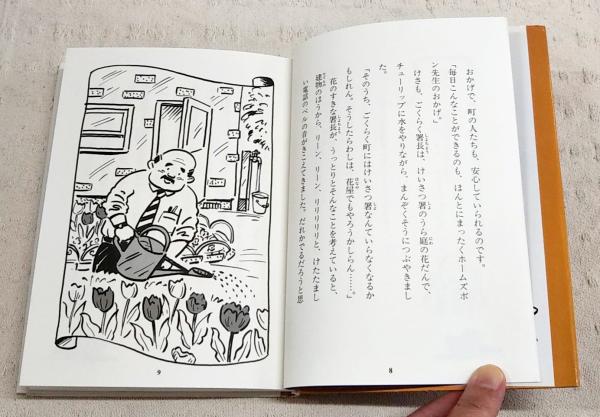 おかげで、町の人たちも、安心していられるのです。
「毎日こんなことができるのも、ほんとにまったくホームズボ
ン先生のおかげ。」
けさも、ごくらく署長は、けいさつ署のうら庭の花だんで、
チューリップに水をやりながら、まんぞくそうにつぶやきまし
た。
「そのうち、ごくらく町にはけいさつ署なんていらなくなるか
もしれん。そうしたらわしは、花屋でもやろうかしらん……。」
花のすきな署長が、うっとりとそんなことを考えていると、
建物のほうから、リーン、リーン、リリリリリと、けたたまし
い電話のベルの音がきこえてきました。だれかでるだろうと思
8
9